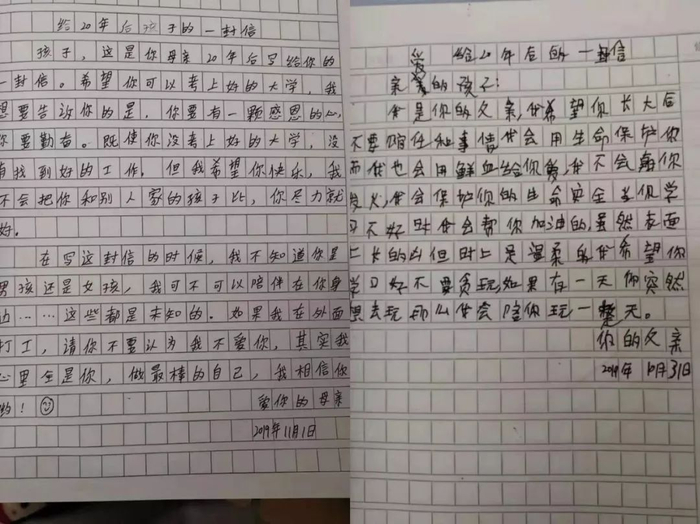 给20年后孩子的一封信
孩子，这是你母亲20年后写给你的
一封信。希望你可以考上好的大学，我
想要告诉你的是，你要有一颗感恩的心，
你要勤奋。既使你没考上好的大学，没
有找到好的工作。但我希望你快乐，我
不会把你和别人家的孩子比，你尽力就
好。
在写这封信的时候，我不知道你是
男孩还是女孩，我可不可以陪伴在你身
边……这些都是未知的。如果我在外面
打工，请你不要认为我不爱你，其实我
心里全是你，做最棒的自己，我相信你
哟！
爱你的母亲
2019年11月1日
给20年后的一封信
亲爱的孩子：
我是你的父亲，我希望你长大后
不要随任和事情我会用生命保护你
而我也会用鲜血给你爱，我不会身你
发火，我会保护你的生命安全当你学
习不好时我会帮你加油的，虽然表面
上长的凶但时上是温柔的我希望你
学习好不要贪玩如果有一天你突然
想去玩那么我会陪你玩一整天。
你的父亲
2019年10月31日